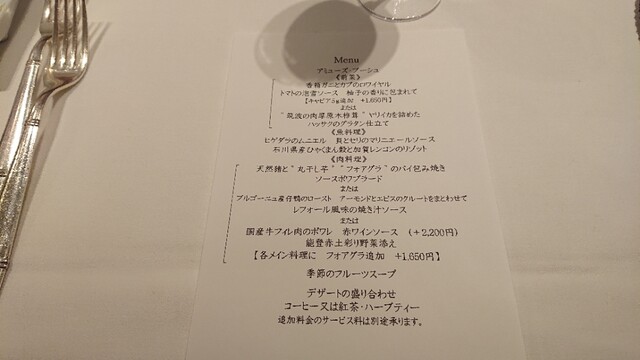 Menu
アミューズ・ブーシュ
《前菜》
香箱ガニとカブのロワイヤル
トマトの泡雪ソース 柚子の香りに包まれて
【キャビア5g追加 +1,650円】
または
"筑波の肉厚原木椎茸" ヤリイカを詰めた
ハッサクのグラタン仕立て
《魚料理》
ヒゲダラのムニエル 貝とセリのマリニエールソース
石川県産ひゃくまん穀と加賀レンコンのリゾット
《肉料理》
天然猪と"丸干し芋" "フォアグラ"のパイ包み焼き
ソースポワブラード
または
ブルゴーニュ産仔鴨のロースト アーモンドとエピスのクルートをまとわせて
レフォール風味の焼き汁ソース
または
国産牛フィレ肉のポワレ 赤ワインソース (+2,200円)
能登赤土彩り野菜添え
【各メイン料理に フォアグラ追加 +1,650円】
季節のフルーツスープ
デザートの盛り合わせ
コーヒー又は紅茶・ハーブティー
追加料金のサービス料は別途承ります。